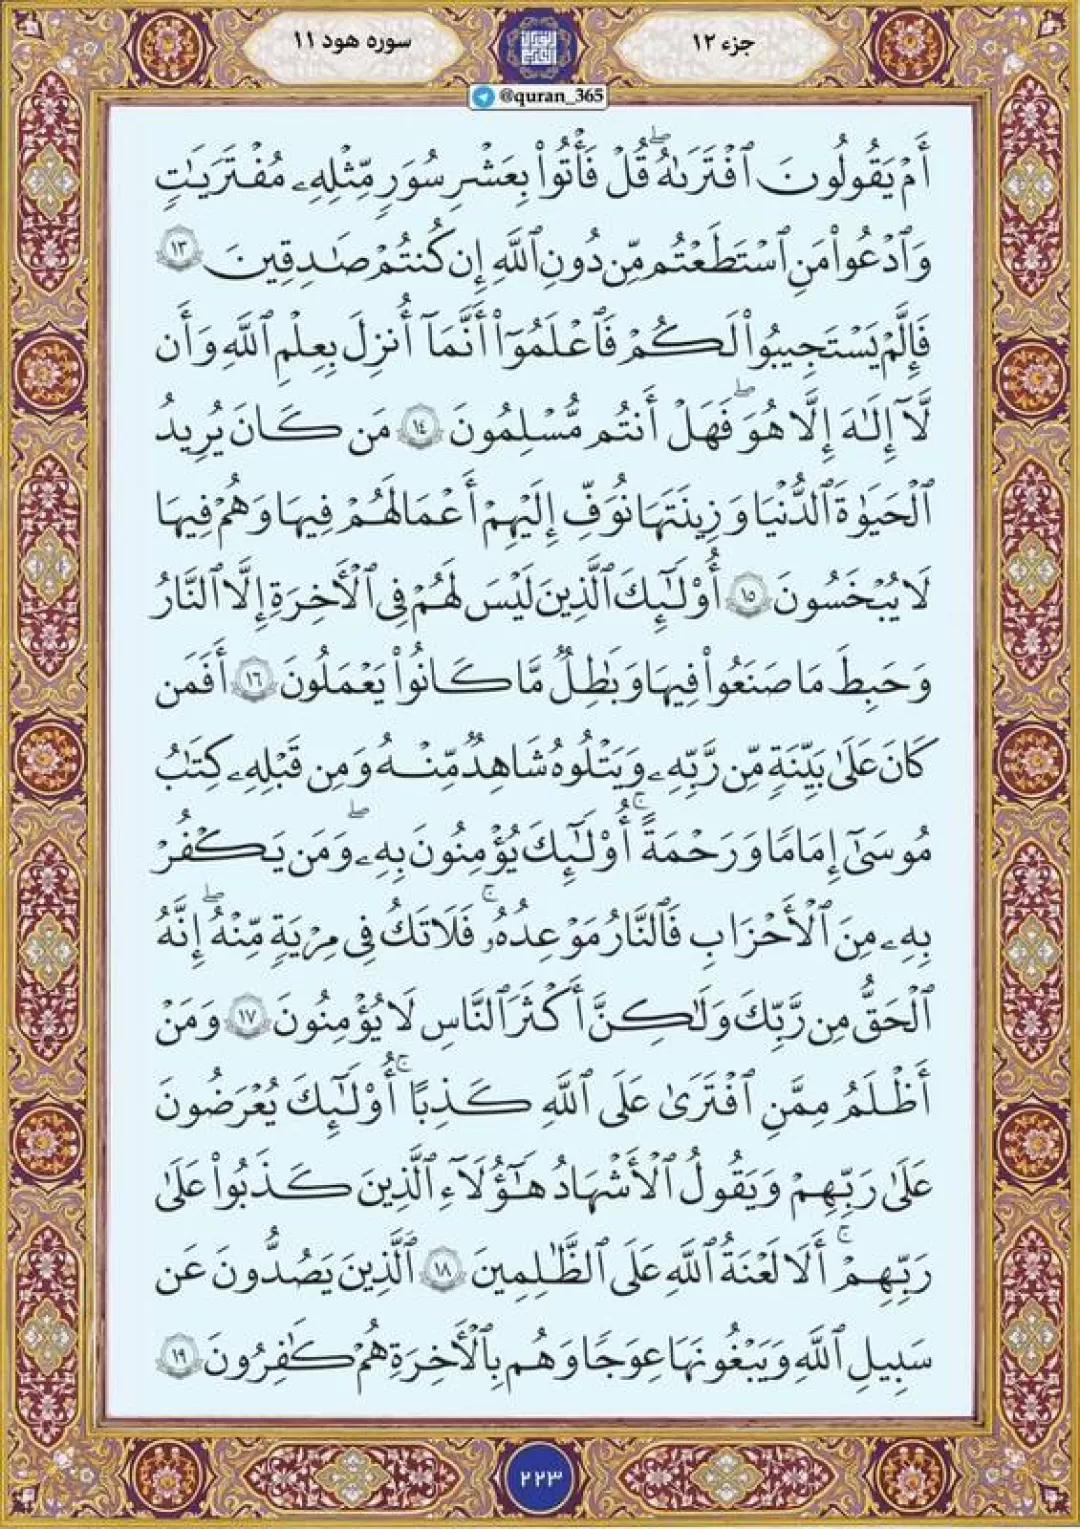 جزء ۱۲
سوره هود ۱۱
@quran_365
أَمْ يَقُولُونَ ٱفْتَرَىٰهُ ۖ قُلْ فَأْتُوا۟ بِعَشْرِ سُوَرٍ مِّثْلِهِۦ مُفْتَرَيَٰتٍ
وَٱدْعُوا۟ مَنِ ٱسْتَطَعْتُم مِّن دُونِ ٱللَّهِ إِن كُنتُمْ صَٰدِقِينَ ١٣
فَإِلَّمْ يَسْتَجِيبُوا۟ لَكُمْ فَٱعْلَمُوٓا۟ أَنَّمَآ أُنزِلَ بِعِلْمِ ٱللَّهِ وَأَن
لَّآ إِلَٰهَ إِلَّا هُوَ ۖ فَهَلْ أَنتُم مُّسْلِمُونَ ١٤ مَن كَانَ يُرِيدُ
ٱلْحَيَوٰةَ ٱلدُّنْيَا وَزِينَتَهَا نُوَفِّ إِلَيْهِمْ أَعْمَٰلَهُمْ فِيهَا وَهُمْ فِيهَا
لَا يُبْخَسُونَ ١٥ أُو۟لَٰٓئِكَ ٱلَّذِينَ لَيْسَ لَهُمْ فِى ٱلْأَخِرَةِ إِلَّا ٱلنَّارُ
وَحَبِطَ مَا صَنَعُوا۟ فِيهَا وَبَٰطِلٌ مَّا كَانُوا۟ يَعْمَلُونَ ١٦ أَفَمَن
كَانَ عَلَىٰ بَيِّنَةٍ مِّن رَّبِّهِۦ وَيَتْلُوهُ شَاهِدٌ مِّنْهُ وَمِن قَبْلِهِۦ كِتَٰبُ
مُوسَىٰٓ إِمَامًا وَرَحْمَةً ۚ أُو۟لَٰٓئِكَ يُؤْمِنُونَ بِهِۦ ۖ وَمَن يَكْفُرْ
بِهِۦ مِنَ ٱلْأَحْزَابِ فَٱلنَّارُ مَوْعِدُهُۥ ۚ فَلَا تَكُ فِى مِرْيَةٍ مِّنْهُ ۖ إِنَّهُ
ٱلْحَقُّ مِن رَّبِّكَ وَلَٰكِنَّ أَكْثَرَ ٱلنَّاسِ لَا يُؤْمِنُونَ ١٧ وَمَنْ
أَظْلَمُ مِمَّنِ ٱفْتَرَىٰ عَلَى ٱللَّهِ كَذِبًا ۚ أُو۟لَٰٓئِكَ يُعْرَضُونَ
عَلَىٰ رَبِّهِمْ وَيَقُولُ ٱلْأَشْهَٰدُ هَٰٓؤُلَآءِ ٱلَّذِينَ كَذَبُوا۟ عَلَىٰ
رَبِّهِمْ ۚ أَلَا لَعْنَةُ ٱللَّهِ عَلَى ٱلظَّٰلِمِينَ ١٨ ٱلَّذِينَ يَصُدُّونَ عَن
سَبِيلِ ٱللَّهِ وَيَبْغُونَهَا عِوَجًا وَهُم بِٱلْأَخِرَةِ هُمْ كَٰفِرُونَ ١٩
۲۲۳